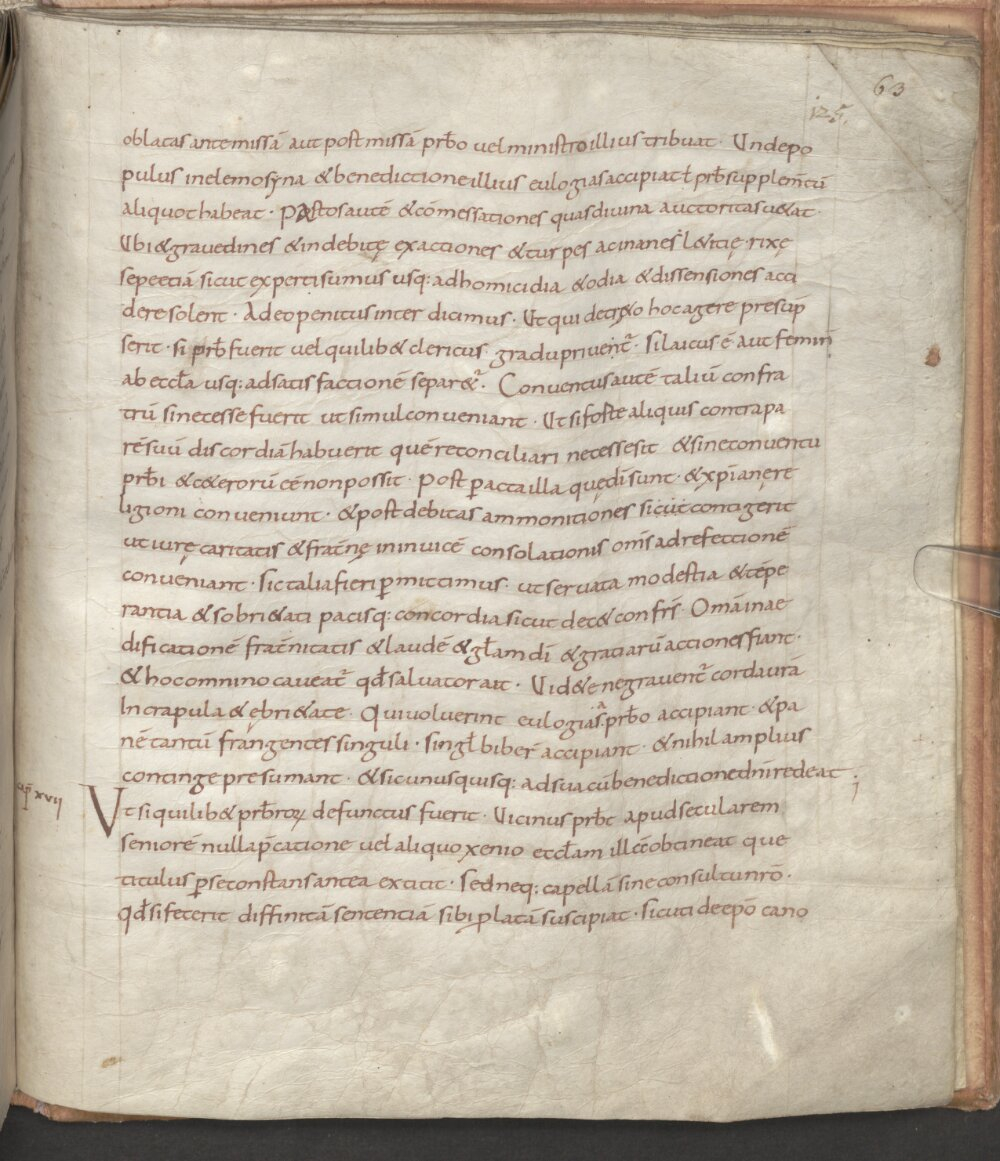 63
125.
oblatas ante missā aut post missā prƀo vel ministro illius tribuat · Unde po
pulus in elemosyna & benedictione illius eulogias accipiat ł prƀ supplem̄tū
aliquot habeat · Pastos autē & cōmessationes quas divina auctoritas u&at ·
Ubi & gravedines & indebitę exactiones & turpes ac inanes l&itię · rixę
sepe etiā sicut experti sumus usq: ad homicidia & odia & dissensiones acci
dere solent · Adeo penitus inter dicimus · Ut qui de c&ero hoc agere presūp
serit · si prƀ fuerit vel quilib& clericus gradu privent᷑ · Si laicus ē aut femin
ab eccƚa usq: ad satisfactionē separ&᷑ · Conventus autē taliū confra
trū si necesse fuerit ut simul conveniant · Ut si foste aliquis contra pa
rē suū discordiā habuerit quē reconciliari necesse sit & sine conventu
prƀi & c&erorū cē non possit · Post peracta illa quę dī sunt · & xp̄ianę re
ligioni conveniunt · & post debitas ammonitiones sicut contigerit
ut iurę caritatis & frat̄nę in invicē consolationis om̄s ad refectionē
conveniant · sic talia fieri ꝑmittimus · ut servata modestia & tēpe
rantia & sobri&ati pacisq: concordia sicut dec& confr̄s · Om̄a in ae
dificationē frat̄nitatis & laudē & gƚam dī & gratiarū actiones fiant ·
& hoc omnino caveat᷑ qđ salvator ait · Vid&e ne gravent᷑ corda ūrā
In crapula & ębri&ate · Qui voluerint eulogias a prƀo accipiant · & pa
nē tantū frangentes singuli · singƚ biber̄ accipiant · & nihil amplius
continge presumant · & sic unusquisq: ad sua cū benedictione dn̄i redeat ;
cap̄ xvii
Ut si quilib& prƀrorꝝ defunctus fuerit · Vicinus prƀt apud secularem
seniorē nulla p̄catione vel aliquo xenio eccƚam illā obtineat que
titulus ꝑ se constans antea extitit · Sed neq: capellā sine consultu nr̄o ·
Qđ si fecerit diffinitā sententiā sibi ꝓlatā suscipiat · sicuti de epō cano